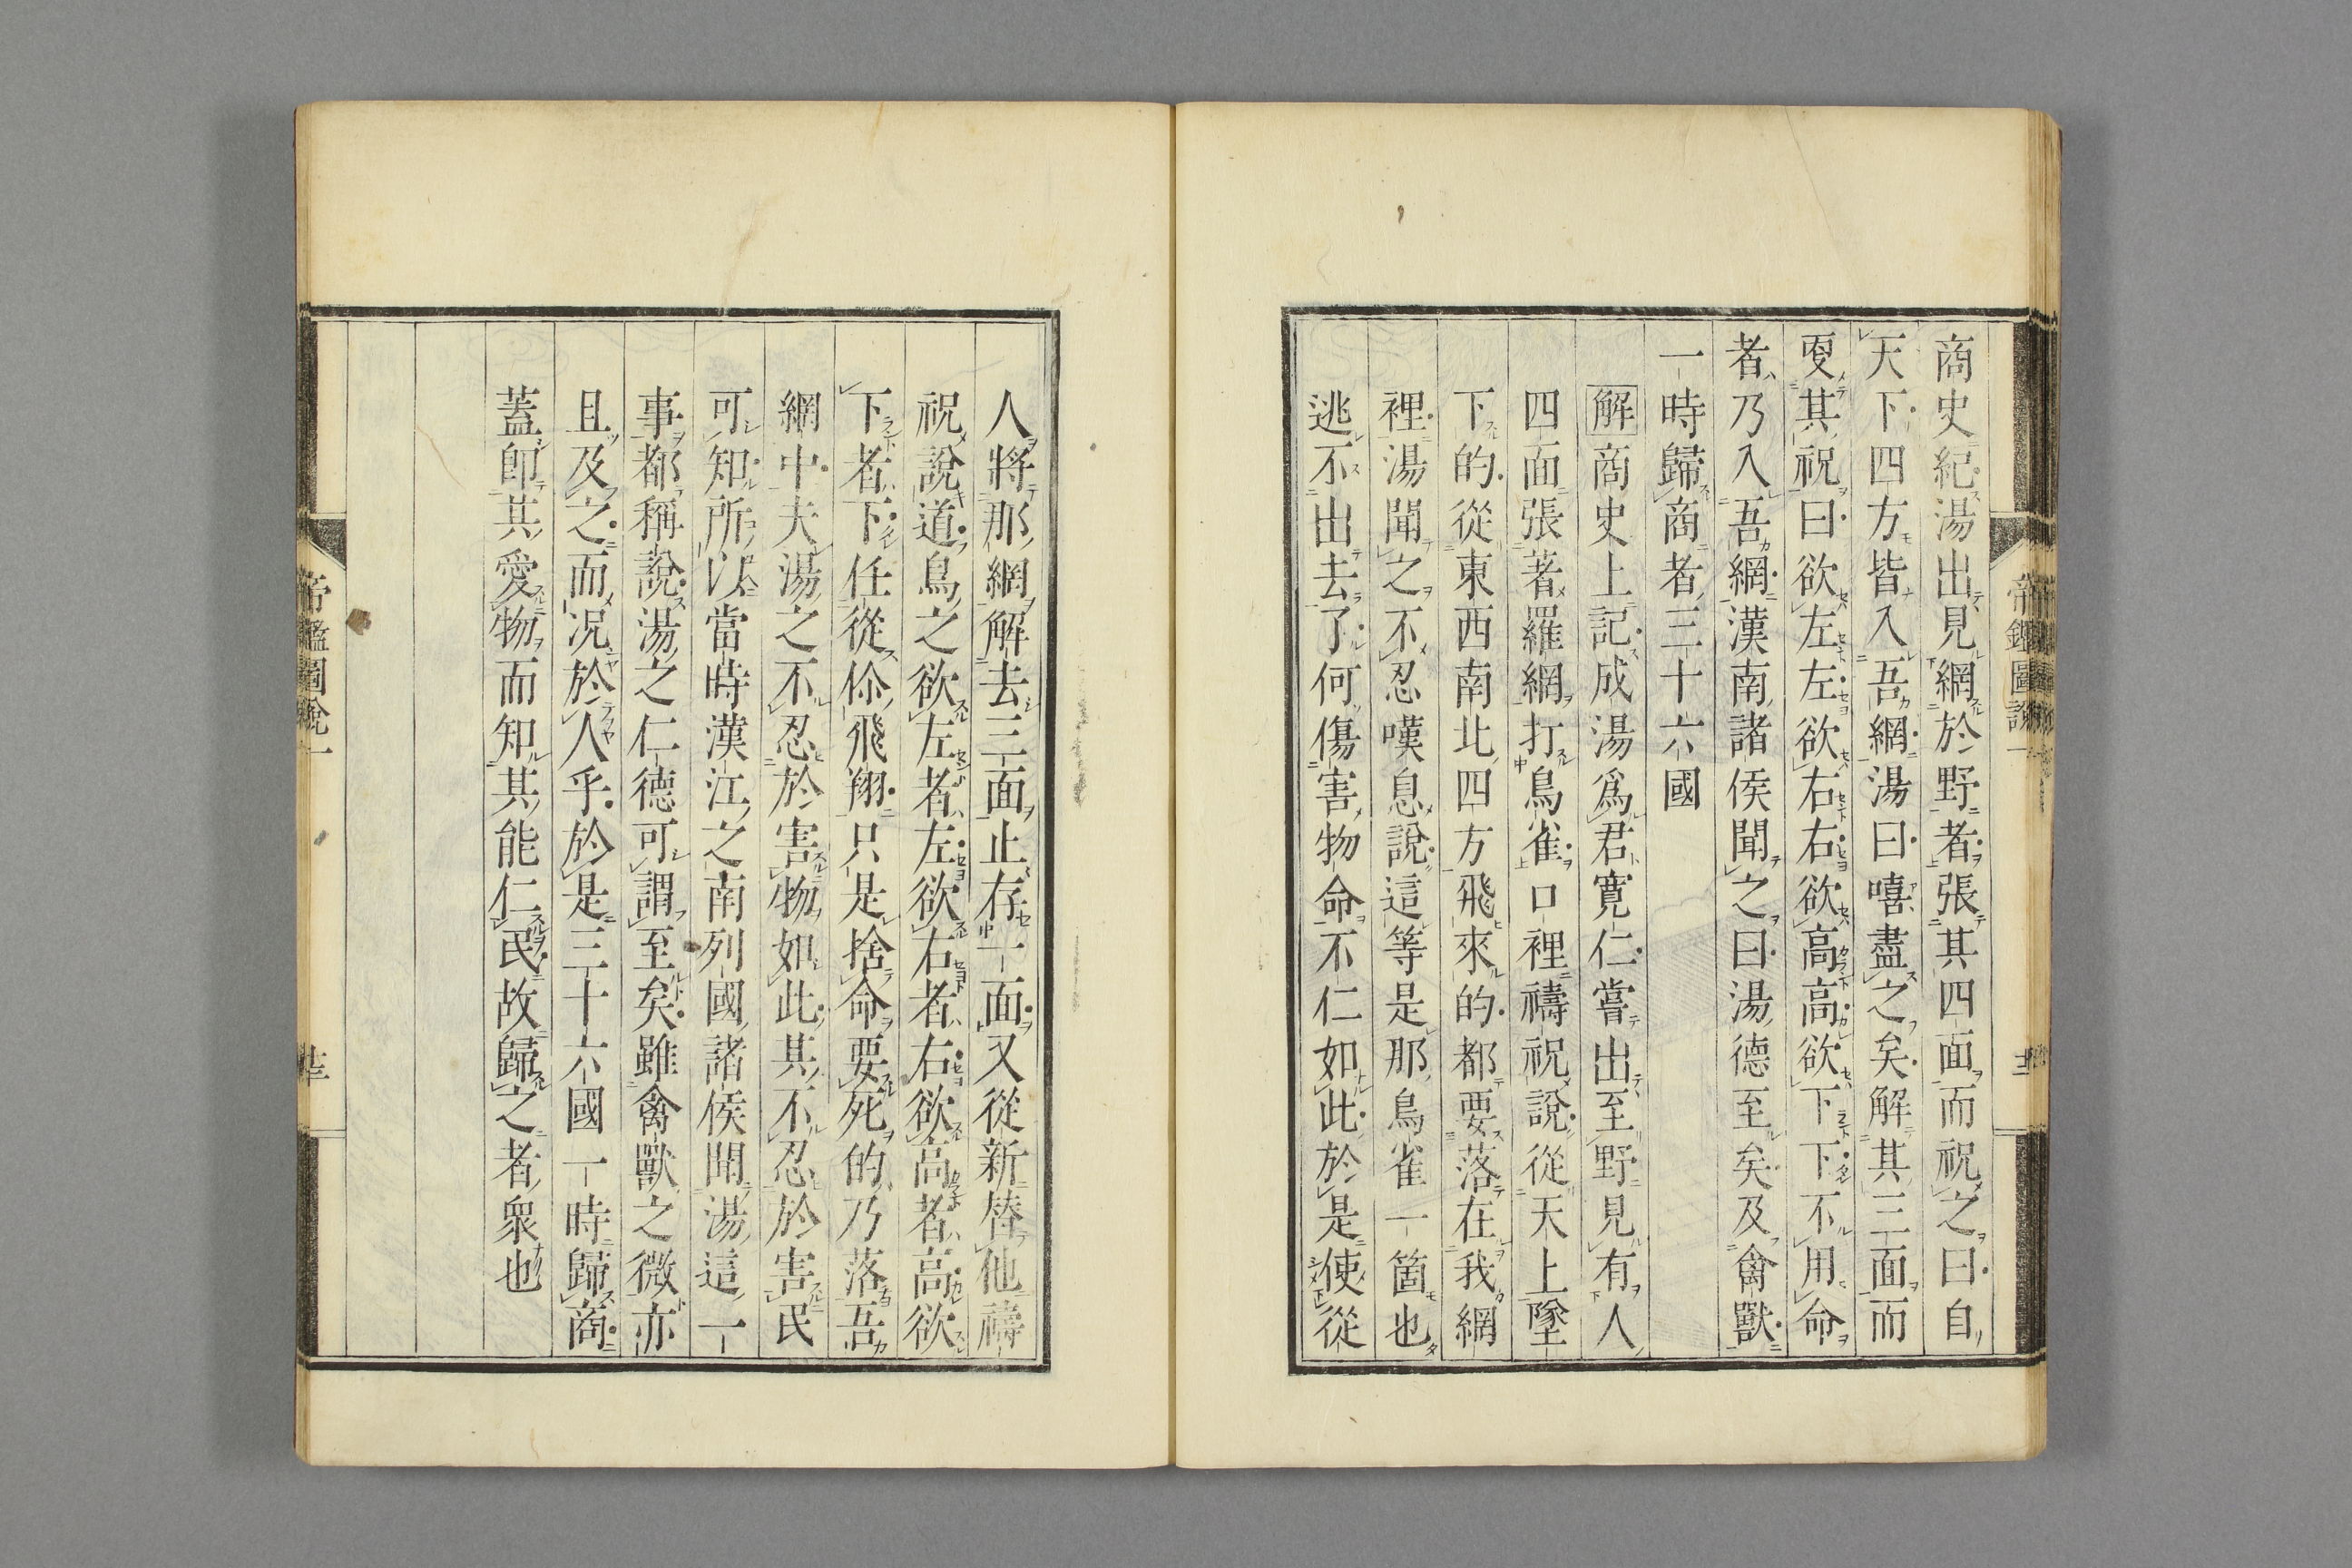 商史紀湯出見網於野者張其四面而祝之曰自
天下四方皆入吾網湯曰嘻盡之矣解其三面而
更其祝曰欲左左欲右右欲高高欲下下不用命
者乃入吾網漢南諸侯聞之曰湯德至矣及禽獸
一時歸商者三十六國
解商史上記成湯爲君寬仁嘗出至野見有人
四面張著羅網打鳥雀口裡禱祝說從天上墜
下的從東西南北四方飛來的都要落在我網
裡湯聞之不忍嘆息說這等是那鳥雀一箇也
逃不出去了何傷害物命不仁如此於是使從
人將那網解去三面止存一面又從新替他禱
祝說道鳥之欲左者左欲右者右欲高者高欲
下者下任從你飛翔只是捨命要死的乃落吾
網中夫湯之不忍於害物如此其不忍於害民
可知所以當時漢江之南列國諸侯聞湯這一
事都稱說湯之仁德可謂至矣雖禽獸之微亦
且及之而况於人乎於是三十六國一時歸商
蓋卽其愛物而知其能仁民故歸之者衆也
帝鑑圖說一